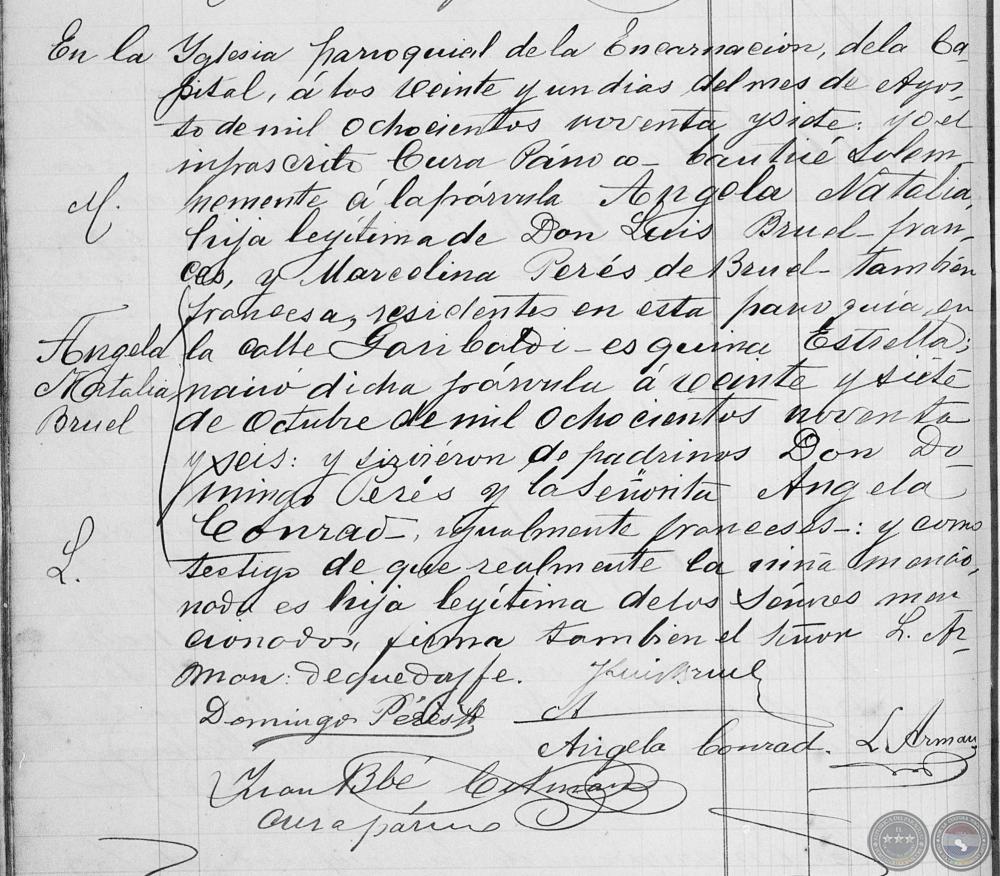 En la Yglesia parroquial de la Encarnacion, dela Ca-
pital, á los veinte y un dias del mes de Agos-
to de mil ochocientos noventa y siete: yo el
infrascrito Cura Párroco bautizé solem-
M.
nemente á la párvula Angela Natalia,
hija legítima de Don Luis Bruel fran-
ces, y Marcelina Perés de Bruel tambien
francesa, residentes en esta parroquia, en
la calle Garibaldi esquina Estrella;
Angela
Natalia
Bruel
nació dicha párvula á veinte y siete
de Octubre de mil ochocientos noventa
y seis: y sirvieron de padrinos Don Do-
mingo Perés y la Señorita Angela
Conrad, igualmente franceses: y como
L.
testigo de que realmente la niña mencio-
nada es hija legítima delos Señores men
cionados, firma tambien el Señor L. Ar-
man: de que doy fe. Luis Bruel
Domingo Pérés
Angela Conrad. L Arman
Juan Bbé
Cura párroco